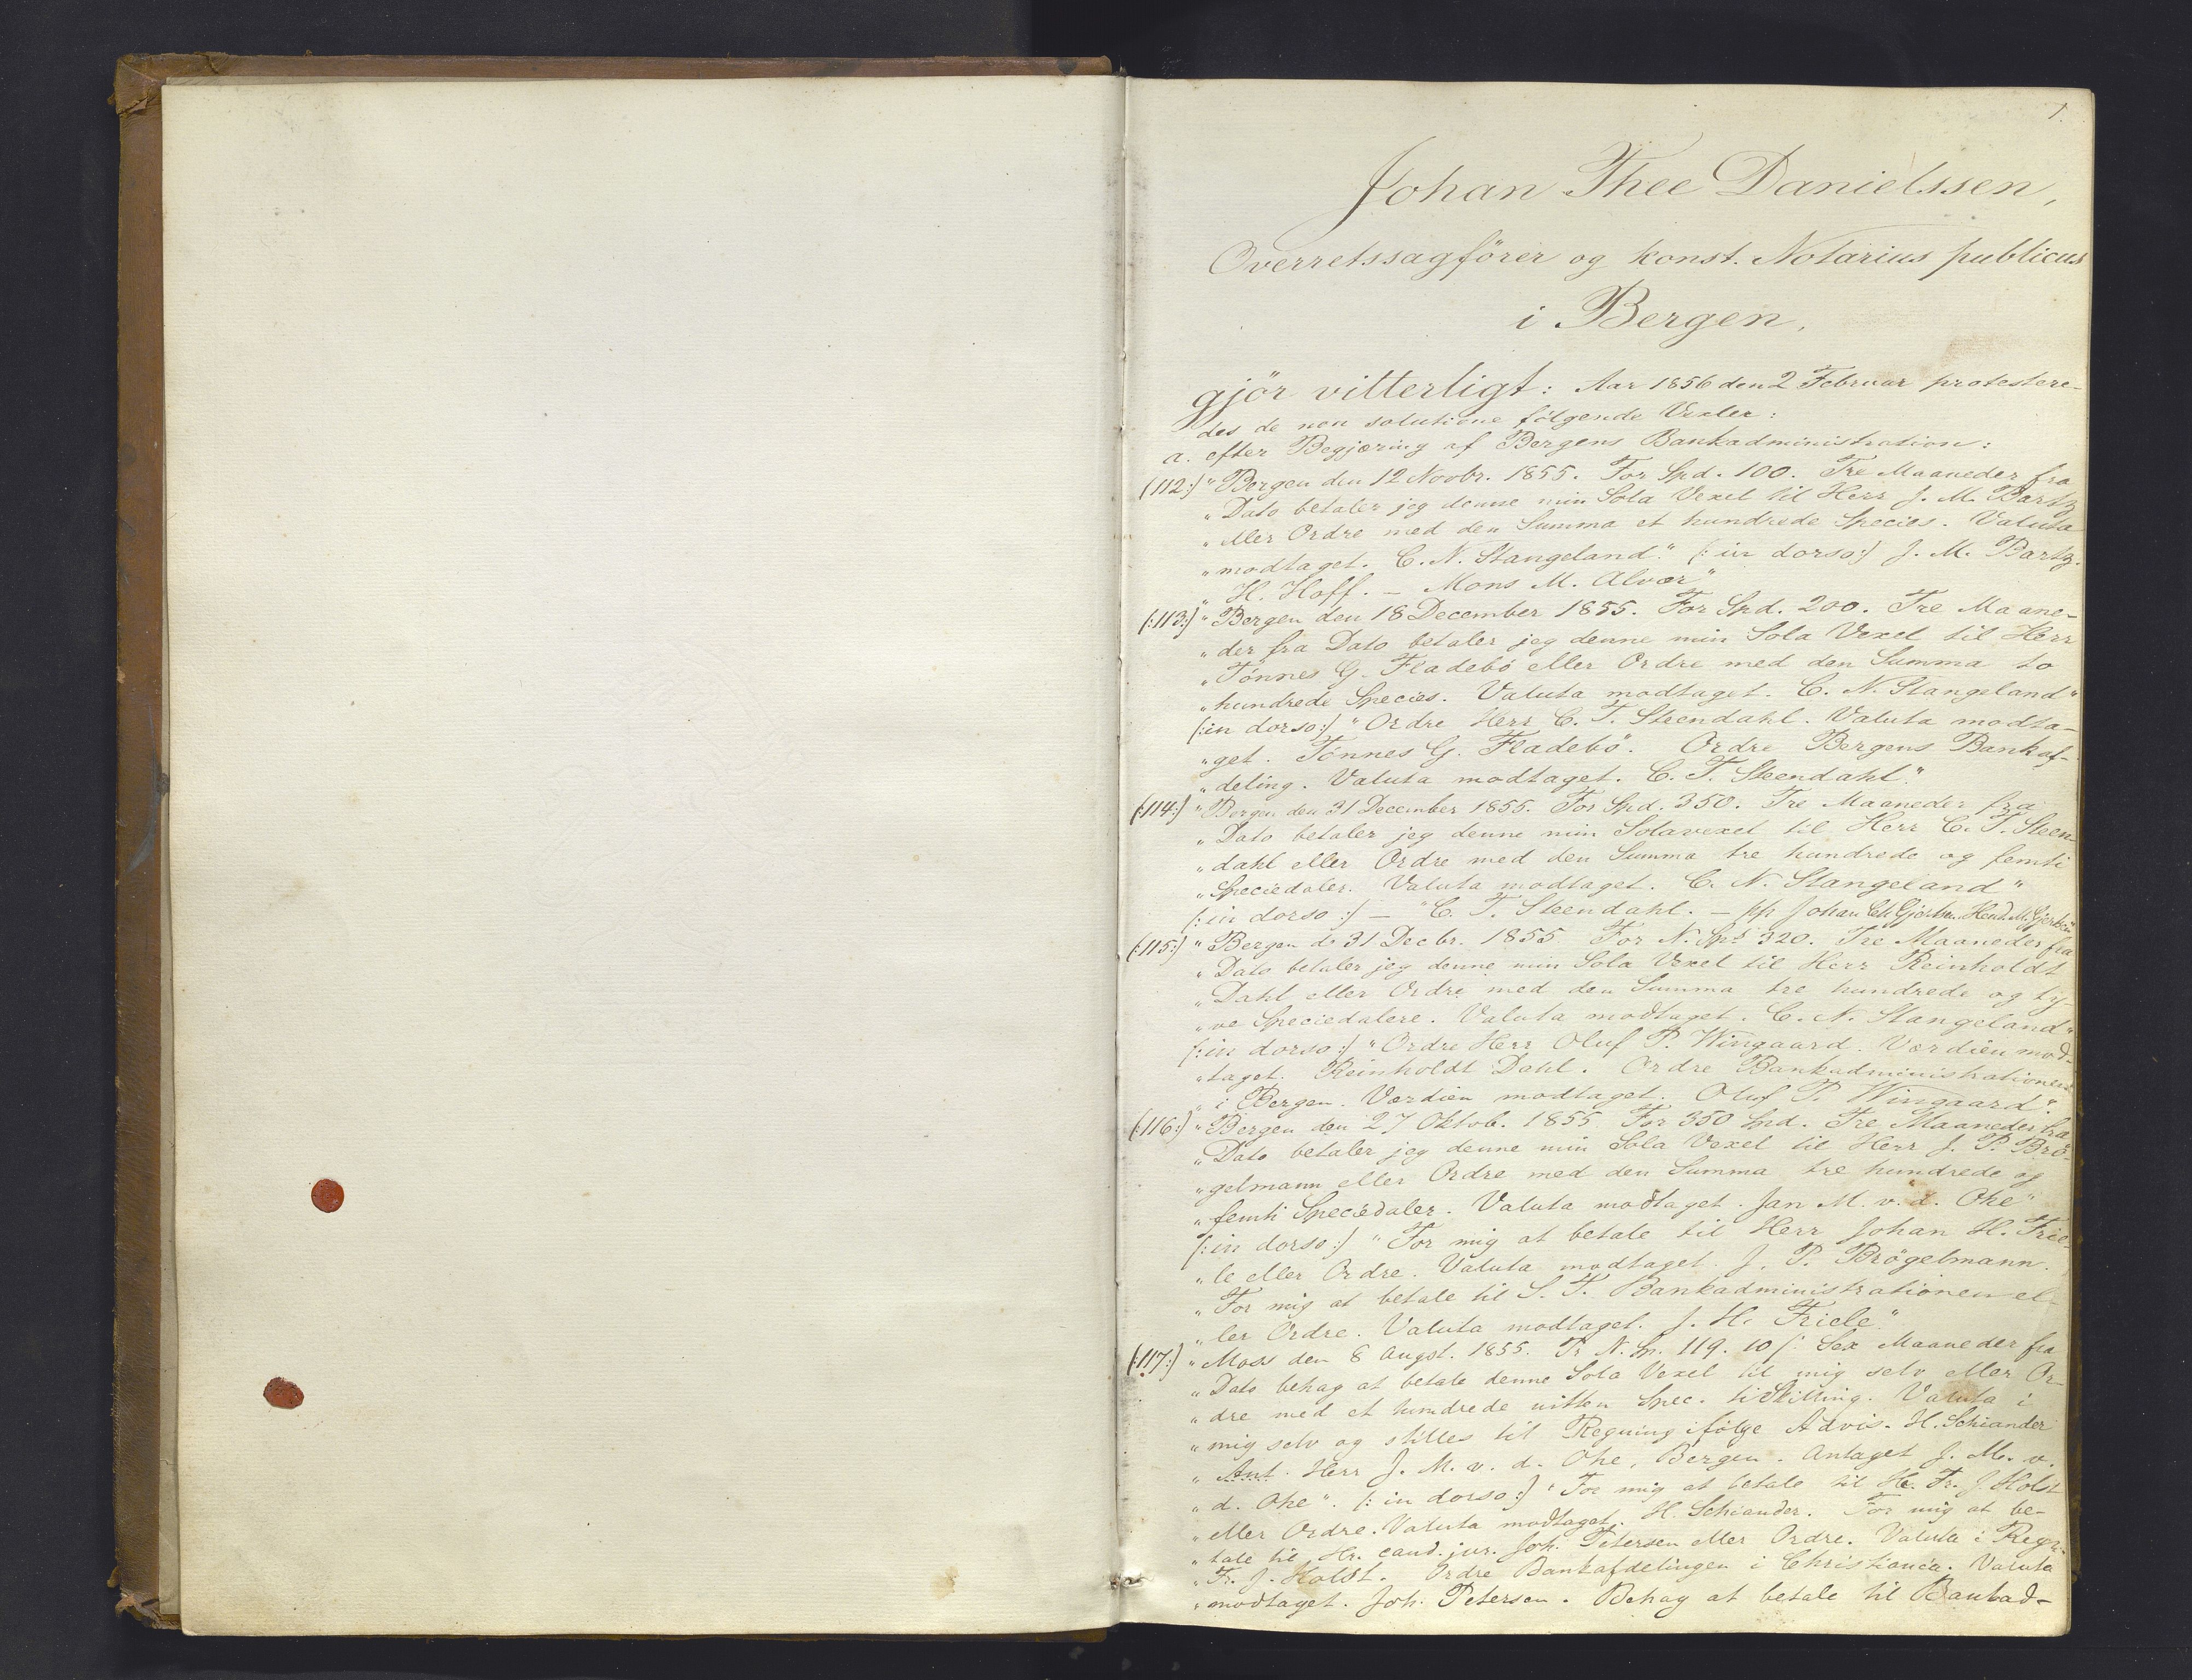 1.
Johan Thee Danielssen,
Overretssagförer og konst. Notarius publicus
i Bergen,
gjör vitterligt: Aar 1856 den 2 Februar protestere-
des de non solutione fölgende Vexler:
a. efter Begjæring af Bergens Bankadministration:
(112:) "Bergen den 12 Novbr. 1855. For Spd. 100. Tre Maaneder fra
"Dato betaler jeg denne min Sola Vexel til Herr J. M. Bartz
"eller Ordre med den Summa et hundrede Species. Valuta
"modtaget. C. N. Stangeland." (: in dorso:) J. M. Bartz.
"H. Hoff. – Mons M. Alvær"
(:113:) "Bergen den 18 December 1855. For Spd. 200. Tre Maane-
"der fra Dato betaler jeg denne min Sola Vexel til Herr
"Tönnes G. Fladebö eller Ordre med den Summa to
"hundrede Species. Valuta modtaget. C. N. Stangeland"
(:in dorso:) "Ordre Herr C. T. Steendahl. Valuta modta-
"get. Tönnes G. Fladebö. Ordre Bergens Bankaf-
"deling. Valuta modtaget. C. T. Steendahl."
(:114:) "Bergen den 31 December 1855. For Spd. 350. Tre Maaneder fra
"Dato betaler jeg denne min Solavexel til Herr C. T. Steen-
"dahl eller Ordre med den Summa tre hundrede og femti
"Speciedaler. Valuta modtaget. C. N. Stangeland"
(:in dorso:) – "C. T. Steendahl. – pp Johan
(:115:) "Bergen d. 31 Decbr. 1855 For N. Spd 320. Tre Maaneder fra
"Dato betaler jeg denne min Sola Vexel til Herr Reinholdt
"Dahl eller Ordre med den Summa tre hundrede og ty-
"ve Speciedalere. Valuta modtaget. C. N. Stangeland"
(:in dorso:) "Ordre Herr Oluf P. Wingaard. Værdien mod-
"taget. Reinholdt Dahl. Ordre Bankadministrationen
"i Bergen. Værdien modtaget. Oluf P. Wingaard."
(:116:) "Bergen den 27 Oktob. 1855. For 350 Spd. Tre Maaneder fra
"Dato betaler jeg denne min Sola Vexel til Herr J. P. Brö-
"gelmann eller Ordre med den Summa tre hundrede og
"femti Speciedaler. Valuta modtaget. Jan M. v. d. Ohe"
(:in dorso:) "For mig at betale til Herr Johan H. Frie-
"le eller Ordre. Valuta modtaget. J. P. Brögelmann.
"For mig at betale til S. T. Bankadministrationen el-
"ler Ordre. Valuta modtaget. J. H. Friele."
(:117:) "Moss den 8 Augst. 1855. Pr N. Sp. 119. 10 /: Sex Maaneder fra
"Dato behag at betale denne Sola Vexel til mig selv eller Or-
"dre med et hundrede nitten Spec. ti Skilling. Valuta i
"mig selv og stilles til Regning ifölge Advis. H. Schiander
"Ant. Herr J. M. v. d. Ohe, Bergen. Antaget J. M. v.
"d. Ohe". (: in dorso:) "For mig at betale til Hr. Fr. J. Holst
"eller Ordre. Valuta modtaget. H. Schiander. For mig at be-
"tale til Hr. cand. jur. Joh. Petersen eller Ordre. Valuta i Regn.
"Fr. J. Holst. Ordre Bankafdelingen i Christiania. Valuta
"modtaget. Joh. Petersen. Behag at betale til Bankad-